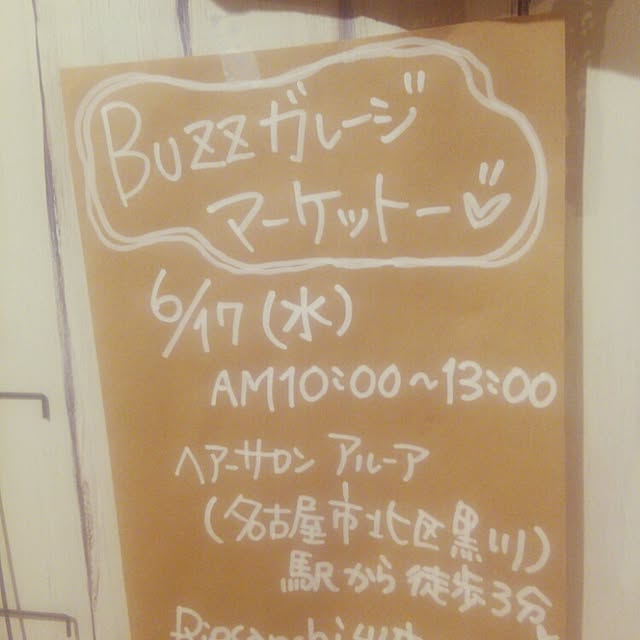 BUZZガレージ
マーケットー
6/17(水)
AM10:00〜13:00
ヘアーサロン アルーア
(名古屋市北区黒川)
駅から徒歩3分